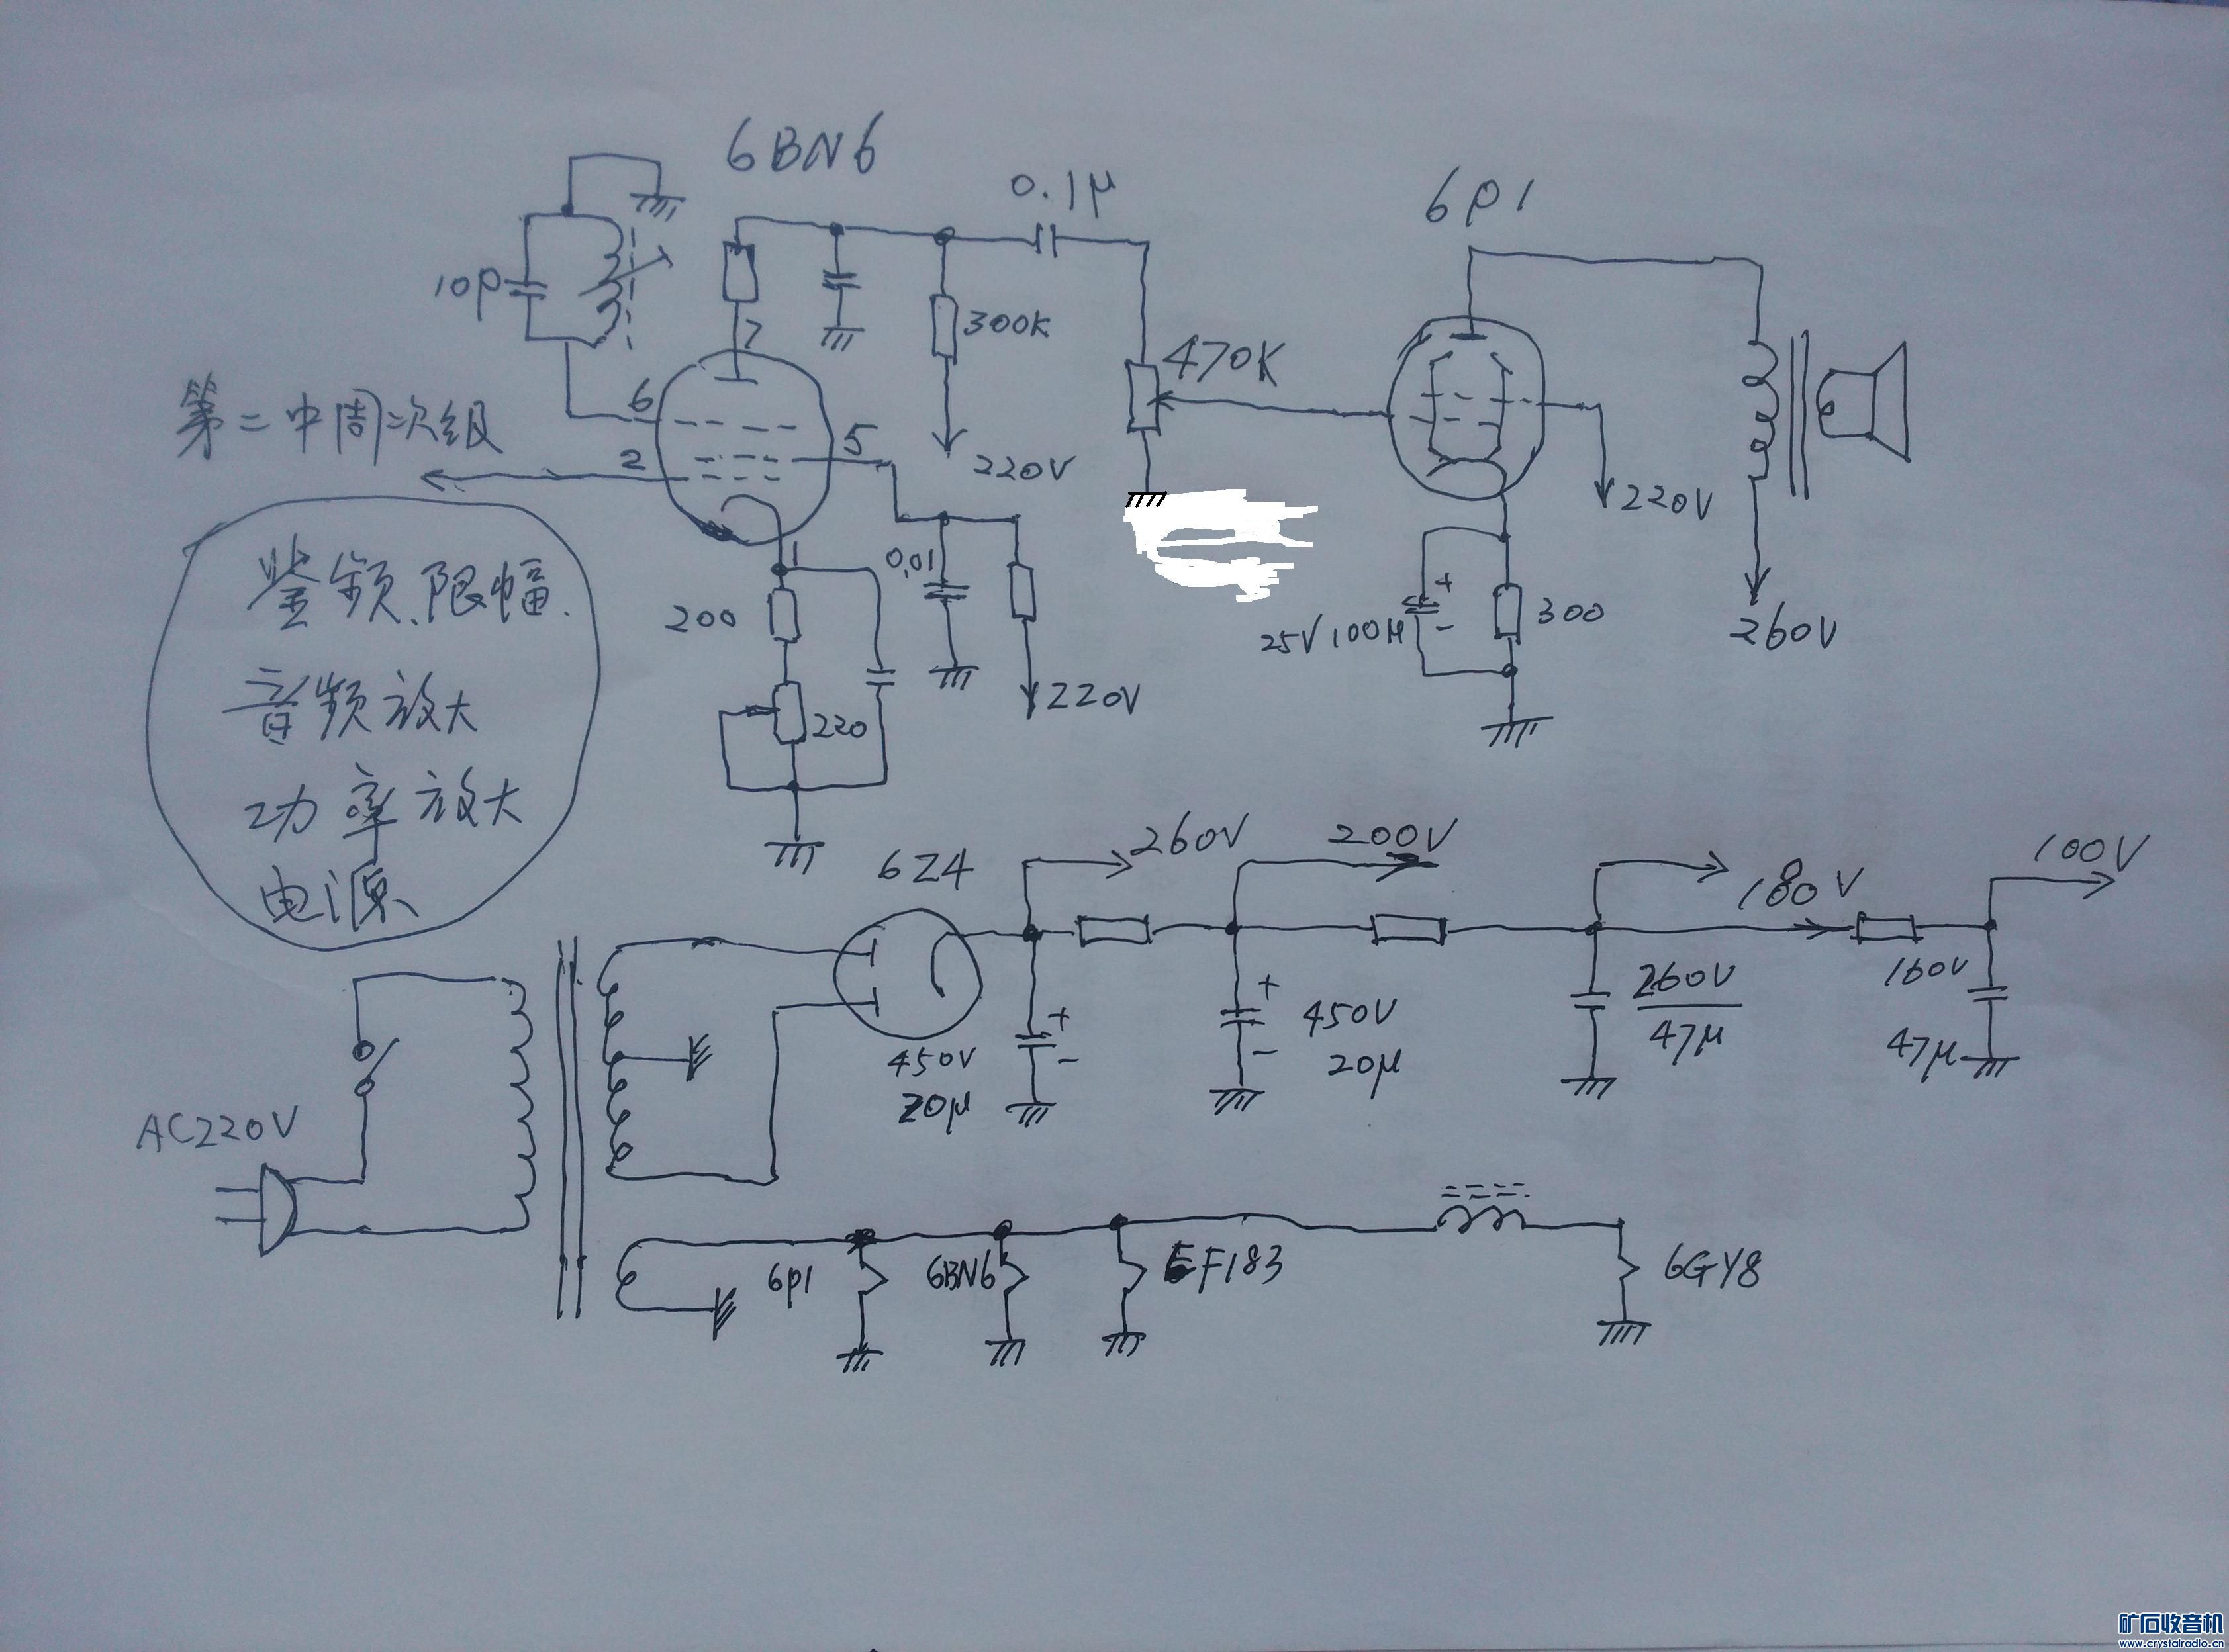 6BN6
0.1μ
6P1
10P
7
300K
470K
第二中周次级
6
2
5
220V
220V
鉴频、限幅、
音频放大
功率放大
电源
1
0.01
200
220
220V
25V100μ
+
-
300
260V
6Z4
260V
200V
180V
100V
450V
20μ
+
-
+
-
450V
20μ
260V
47μ
160V
47μ
AC220V
6P1
6BN6
EF183
6GY8
矿石收音机
www.crystalradio.cn